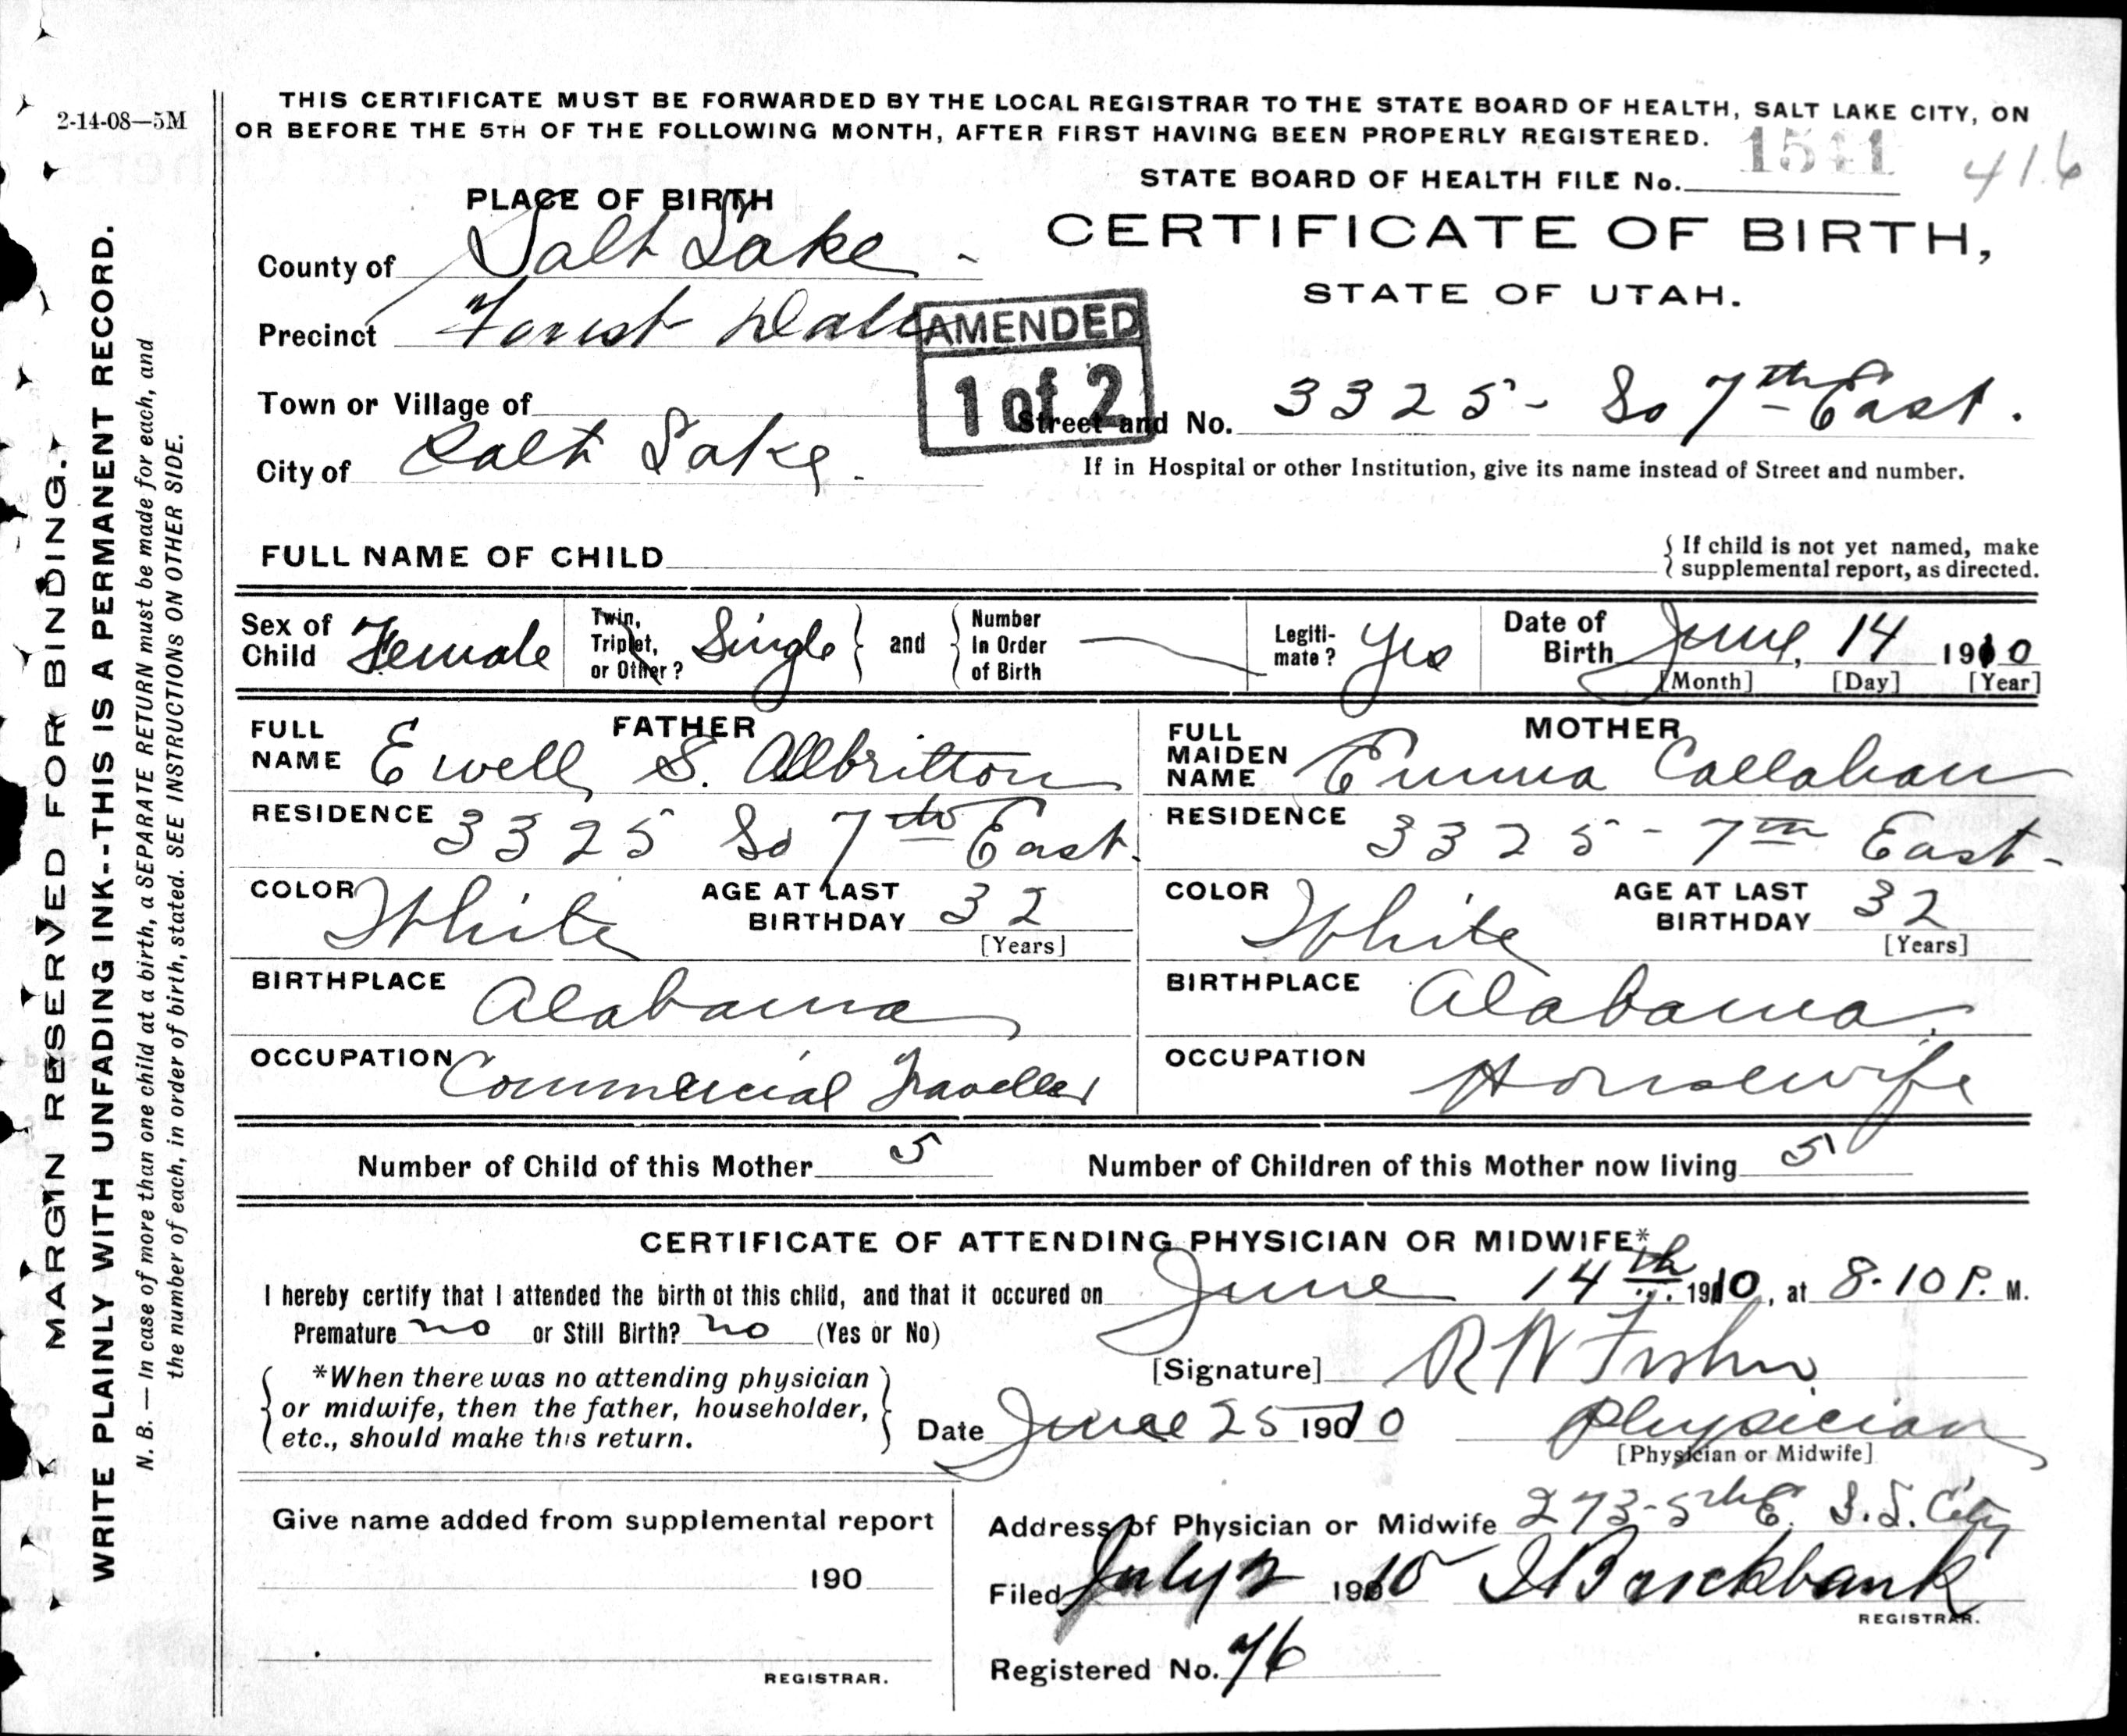 2-14-08—5M
THIS CERTIFICATE MUST BE FORWARDED BY THE LOCAL REGISTRAR TO THE STATE BOARD OF HEALTH, SALT LAKE CITY, ON
OR BEFORE THE 5TH OF THE FOLLOWING MONTH, AFTER FIRST HAVING BEEN PROPERLY REGISTERED.
STATE BOARD OF HEALTH FILE No. 416
PLACE OF BIRTH
CERTIFICATE OF BIRTH,
STATE OF UTAH.
County of Salt Lake
Precinct Forest Dale
AMENDED
1 of 2
Town or Village of
Street and No. 3325 - So 7th East.
City of Salt Lake.
If in Hospital or other Institution, give its name instead of Street and number.
FULL NAME OF CHILD
{ If child is not yet named, make
supplemental report, as directed.
Sex of Child Female
Twin, Triplet, or Other? Single } and { Number In Order of Birth —
Legiti-mate? Yes
Date of Birth June, 14 1910
[Month] [Day] [Year]
FATHER
FULL NAME Ewell S. Albritton
RESIDENCE 3325 So 7th East.
COLOR White
AGE AT LAST BIRTHDAY 32
[Years]
BIRTHPLACE Alabama
OCCUPATION Commercial Traveller
MOTHER
FULL MAIDEN NAME Emma Callahan
RESIDENCE 3325 - 7th East -
COLOR White
AGE AT LAST BIRTHDAY 32
[Years]
BIRTHPLACE Alabama
OCCUPATION Housewife
Number of Child of this Mother 5
Number of Children of this Mother now living 5
CERTIFICATE OF ATTENDING PHYSICIAN OR MIDWIFE*
I hereby certify that I attended the birth of this child, and that it occured on June 14th 1910, at 8.10 P. M.
Premature no or Still Birth? no (Yes or No)
[Signature] R W Fisher
{ *When there was no attending physician
or midwife, then the father, householder,
etc., should make this return. }
Date June 25 1910
Physician
[Physician or Midwife]
Give name added from supplemental report
190
REGISTRAR.
Address of Physician or Midwife 273 - 5th E. S. L. City
Filed July 2 1910 Brockbank
REGISTRAR.
Registered No. 76
MARGIN RESERVED FOR BINDING.
WRITE PLAINLY WITH UNFADING INK--THIS IS A PERMANENT RECORD.
N. B. — In case of more than one child at a birth, a SEPARATE RETURN must be made for each, and
the number of each, in order of birth, stated. SEE INSTRUCTIONS ON OTHER SIDE.